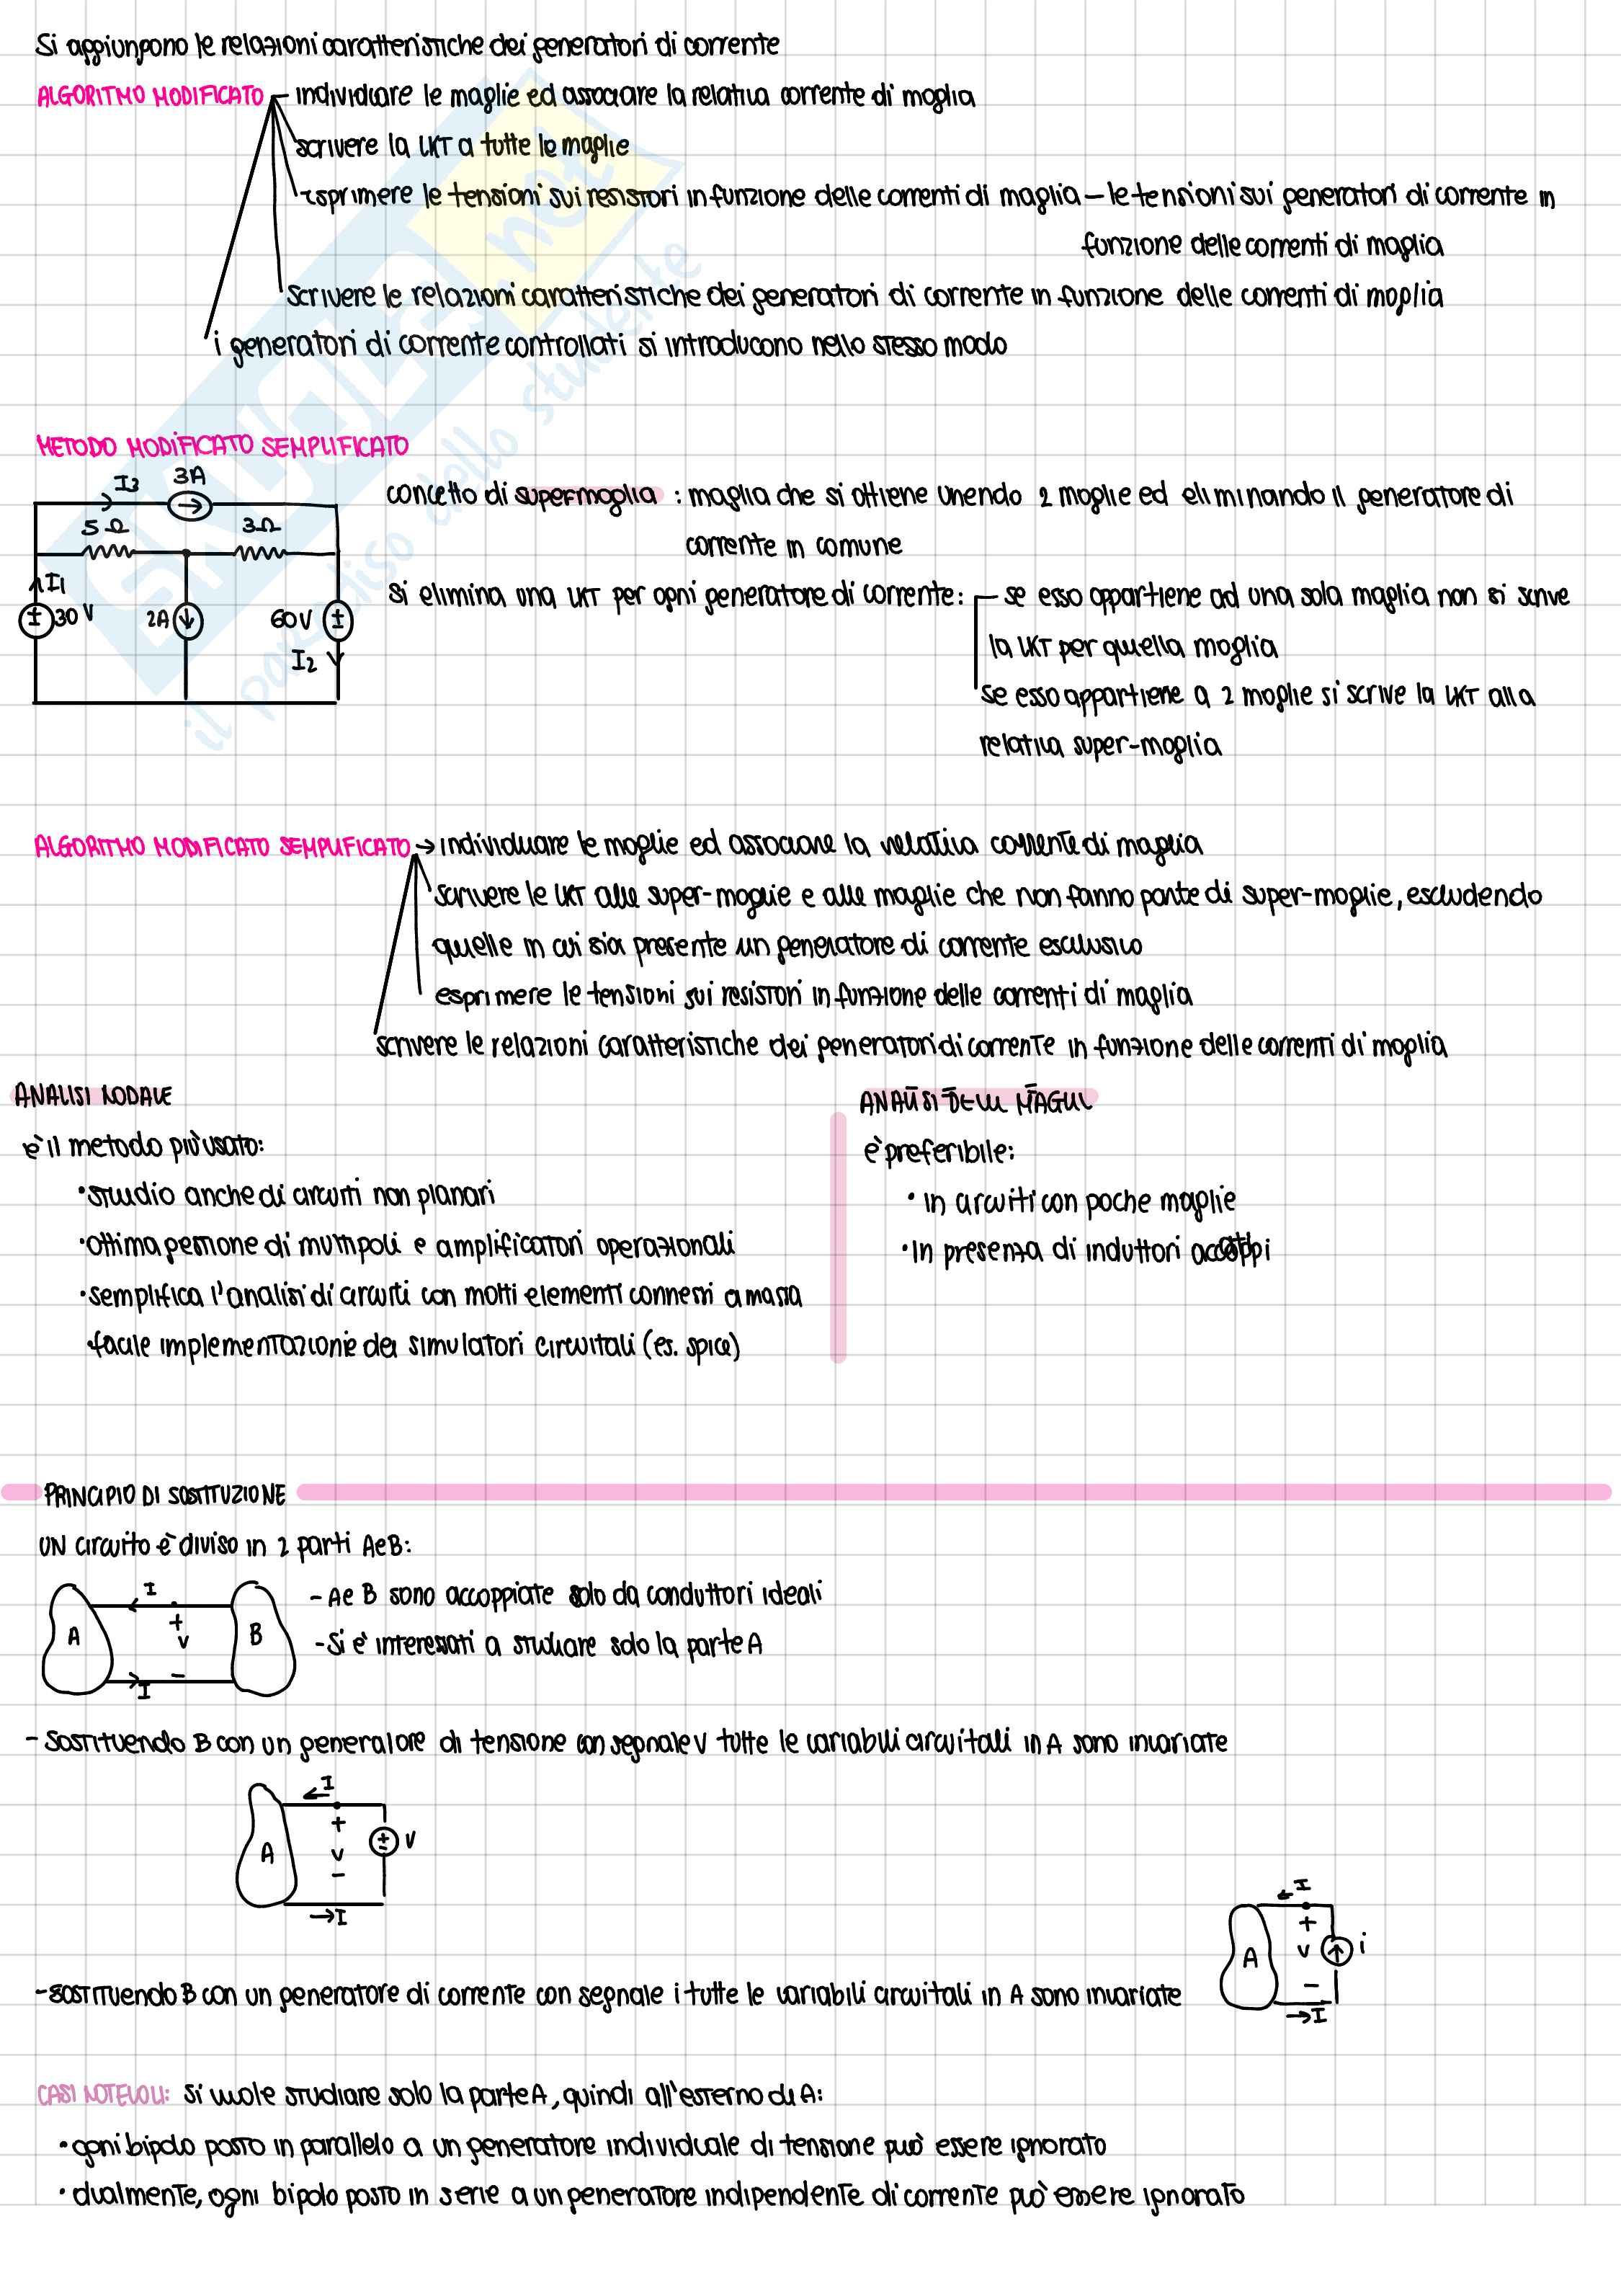 Si aggiungono le relazioni caratteristiche dei generatori di corrente
ALGORITMO MODIFICATO – individuare le maglie ed associare la relativa corrente di maglia
scrivere la LKT a tutte le maglie
esprimere le tensioni sui resistori in funzione delle correnti di maglia – le tensioni sui generatori di corrente in
funzione delle correnti di maglia
scrivere le relazioni caratteristiche dei generatori di corrente in funzione delle correnti di maglia
i generatori di corrente controllati si introducono nello stesso modo
METODO MODIFICATO SEMPLIFICATO
I3 3A
5Ω 3Ω
I1
30V 2A 60V
I2
concetto di supermaglia : maglia che si ottiene unendo 2 maglie ed eliminando il generatore di
corrente in comune
si elimina una LKT per ogni generatore di corrente: – se esso appartiene ad una sola maglia non si scrive
la LKT per quella maglia
se esso appartiene a 2 maglie si scrive la LKT alla
relativa super-maglia
ALGORITMO MODIFICATO SEMPLIFICATO → individuare le maglie ed associare la relativa corrente di maglia
scrivere le LKT alle super-maglie e alle maglie che non fanno parte di super-maglie, escludendo
quelle in cui sia presente un generatore di corrente esclusivo
esprimere le tensioni sui resistori in funzione delle correnti di maglia
scrivere le relazioni caratteristiche dei generatori di corrente in funzione delle correnti di maglia
ANALISI NODALE
è il metodo più usato:
• studio anche di circuiti non planari
• ottima gestione di multipoli e amplificatori operazionali
• semplifica l'analisi di circuiti con molti elementi connessi a massa
• facile implementazione dei simulatori circuitali (es. spice)
ANALISI DELLE MAGLIE
è preferibile:
• in circuiti con poche maglie
• In presenza di induttori
PRINCIPIO DI SOSTITUZIONE
UN circuito è diviso in 2 parti A e B:
A I + v – I B
– A e B sono accoppiate solo da conduttori ideali
– Si è interessati a studiare solo la parte A
– Sostituendo B con un generatore di tensione con segnale v tutte le variabili circuitali in A sono invariate
A ← I + v – → I ± v
– sostituendo B con un generatore di corrente con segnale i tutte le variabili circuitali in A sono invariate
A ← I + v – → I i
CASI NOTEVOLI: Si vuole studiare solo la parte A, quindi all'esterno di A:
• ogni bipolo posto in parallelo a un generatore individuale di tensione può essere ignorato
• dualmente, ogni bipolo posto in serie a un generatore indipendente di corrente può essere ignorato
SKUOLA.net
il paradiso dello studente